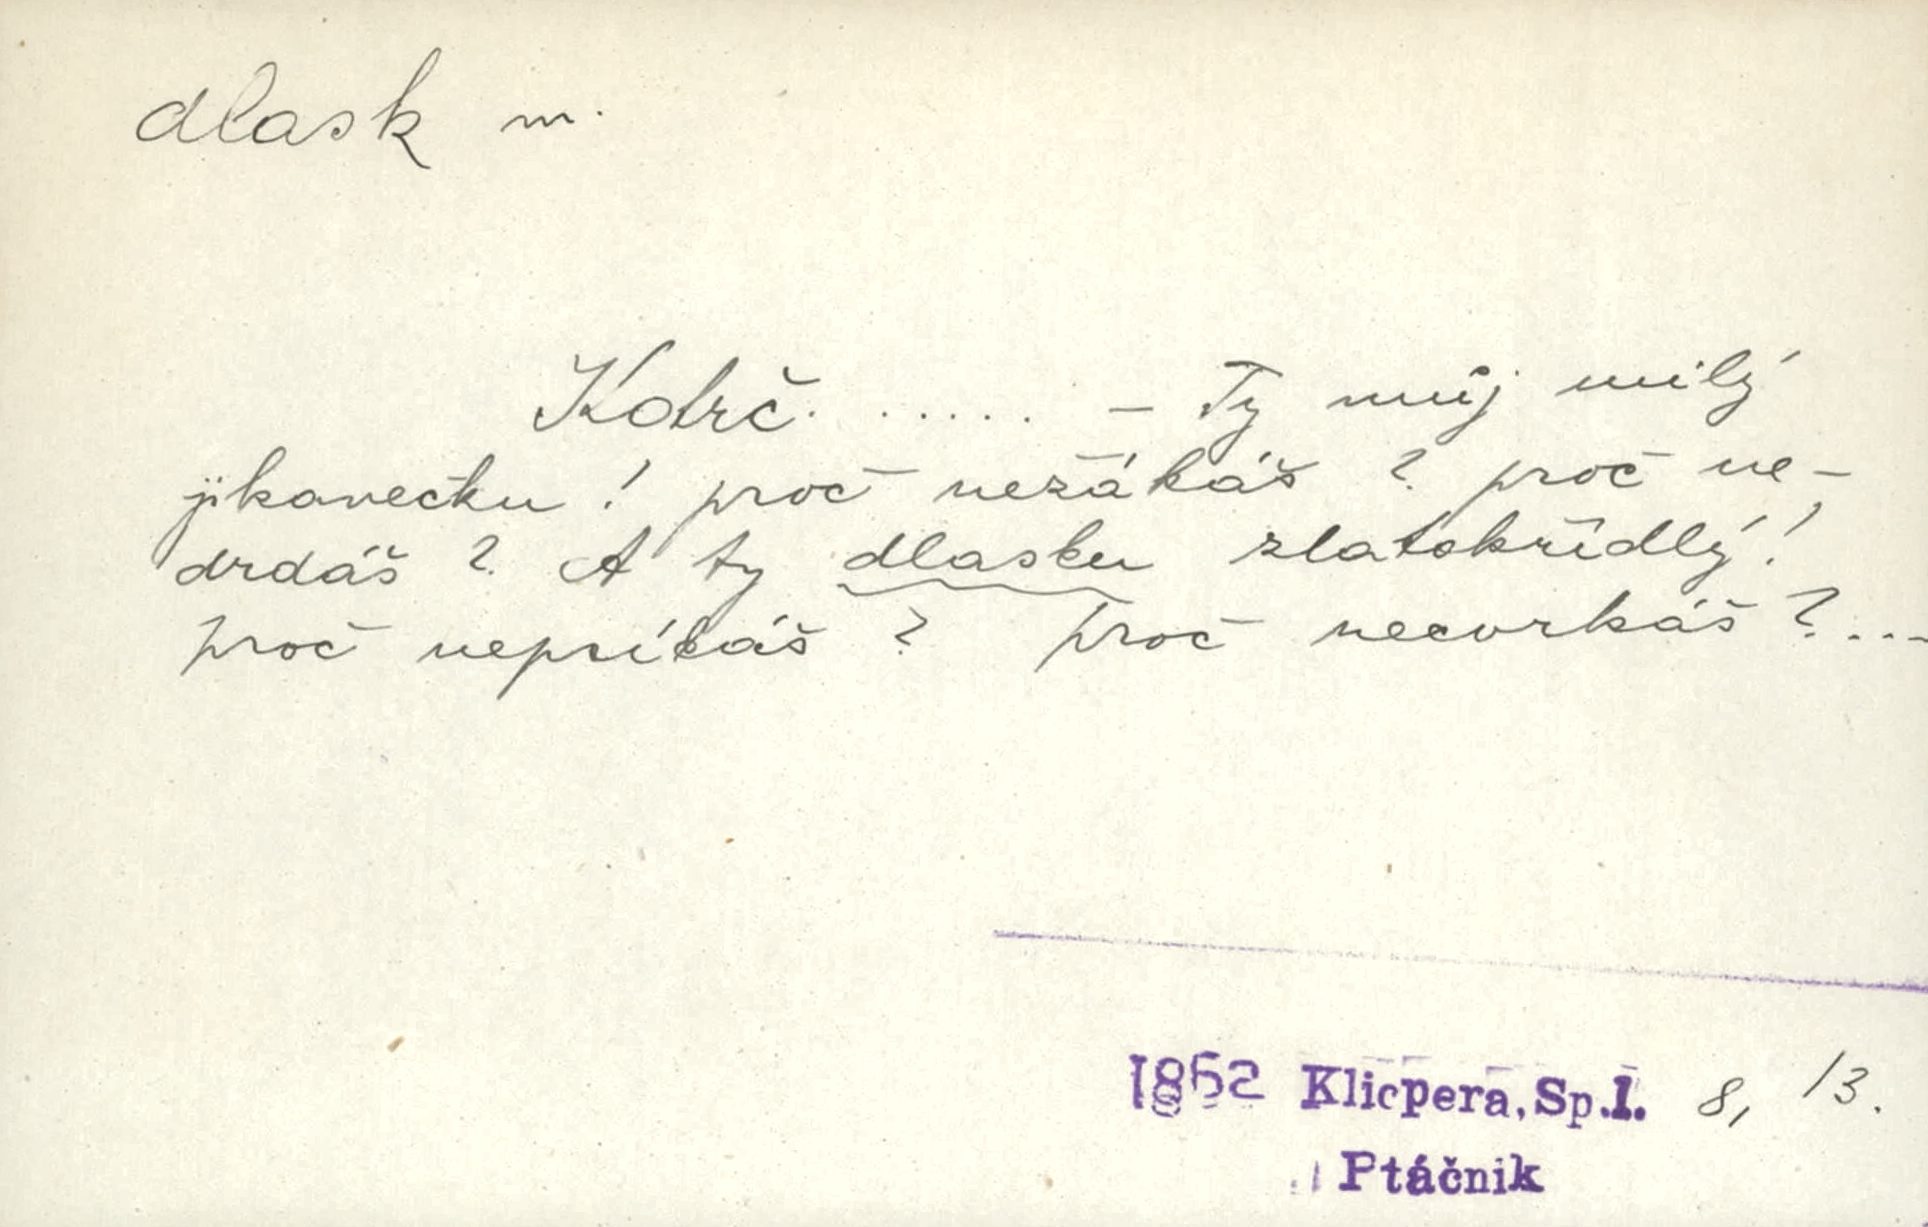 dlask m.
Kdrč. ..... – Ty můj milý
jikavečku! proč nežákáš? proč ne-
drdáš? A ty dlasku zlatokřídlý!
proč nepsíkáš? proč necvrkáš?...
1862 Klicpera, Sp.I. 8, 13.
Ptáčnik